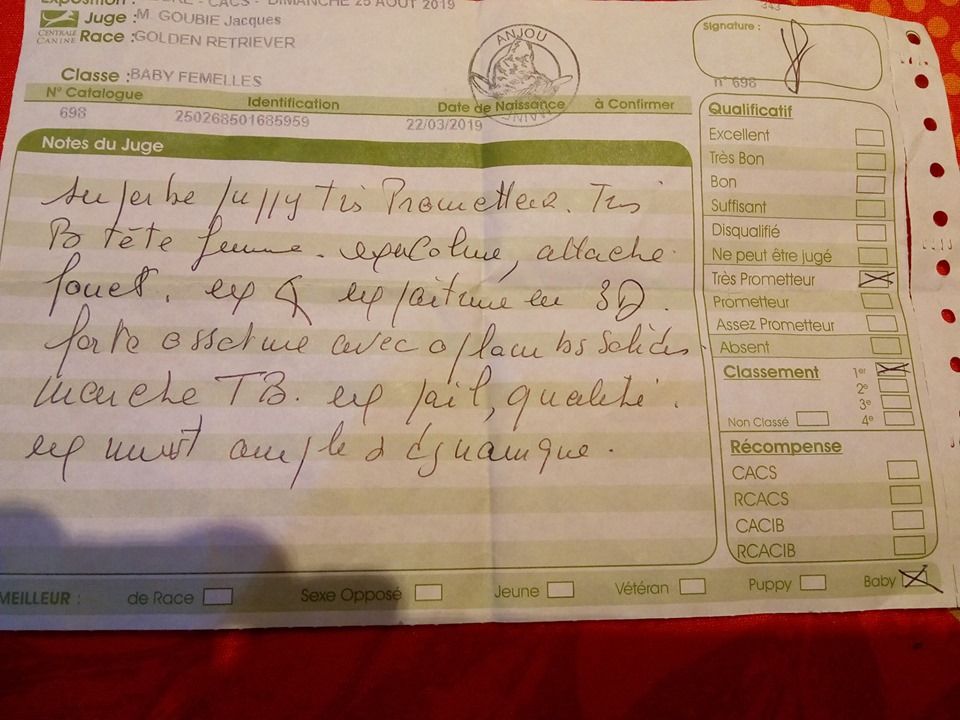 CACS - DIMANCHE 25 AOUT 2019
CENTRALE CANINE
Juge : M. GOUBIE Jacques
Race : GOLDEN RETRIEVER
Classe : BABY FEMELLES
ANJOU
Signature :
n° 698
N° Catalogue Identification Date de Naissance à Confirmer
698 250268501685959 22/03/2019
Notes du Juge
superbe puppy Très Prometteur. Très
B tête femme. ex, attache
fouet. ex ex poitrine en 3D.
forte ossature avec aplombs solides
marche TB. ex poil, qualité.
ex mvst ample & dynamique.
Qualificatif
Excellent
Très Bon
Bon
Suffisant
Disqualifié
Ne peut être jugé
Très Prometteur
Prometteur
Assez Prometteur
Absent
Classement 1er
2e
3e
Non Classé 4e
Récompense
CACS
RCACS
CACIB
RCACIB
MEILLEUR : de Race Sexe Opposé Jeune Vétéran Puppy Baby